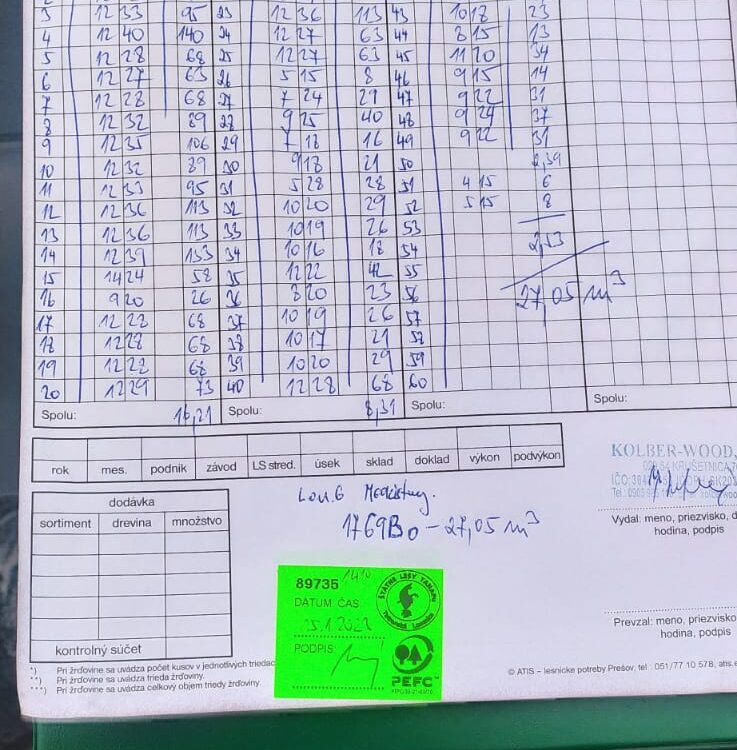 3 12 33 95 23 12 36 113 43 10 18 23
4 12 40 140 24 12 27 63 44 8 15 13
5 12 28 68 25 12 27 63 45 11 20 34
6 12 27 63 26 5 15 8 46 9 15 14
7 12 28 68 27 7 24 29 47 9 22 31
8 12 32 89 28 9 25 40 48 9 24 37
9 12 35 106 29 7 18 16 49 9 22 31
10 12 32 89 30 9 18 21 50 2,39
11 12 33 95 31 5 28 28 51 4 15 6
12 12 36 113 32 10 20 29 52 5 15 8
13 12 36 113 33 10 19 26 53
14 12 39 133 34 10 16 18 54 2,53
15 14 24 58 35 12 22 42 55
16 9 20 26 36 8 20 23 56 27,05 m³
17 12 28 68 37 10 19 26 57
18 12 28 68 38 10 17 21 58
19 12 28 68 39 10 20 29 59
20 12 29 73 40 12 28 68 60
Spolu: 16,21 Spolu: 8,31 Spolu: Spolu:
rok mes. podnik závod LS stred. úsek sklad doklad výkon podvýkon
KOLBER-WOOD,
dodávka
sortiment drevina množstvo
kontrolný súčet
1769 Bo - 27,05 m³
Vydal: meno, priezvisko, d
hodina, podpis
89735
DÁTUM ČAS
PODPIS
ŠTÁTNE LESY TANAPU
Tatranská Lomnica
PEFC™
Prevzal: meno, priezvisko
hodina, podpis
*) Pri žrďovine sa uvádza počet kusov v jednotlivých triedac
**) Pri žrďovine sa uvádza trieda žrďoviny.
***) Pri žrďovine sa uvádza celkový objem triedy žrďoviny.
© ATIS – lesnícke potreby Prešov, tel.: 051/77 10 578, atis.